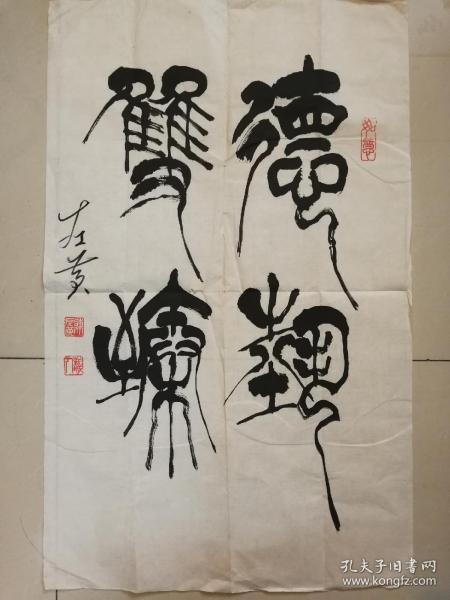 德藝
雙臻
左黄
孔夫子旧书网
www.kongfz.com